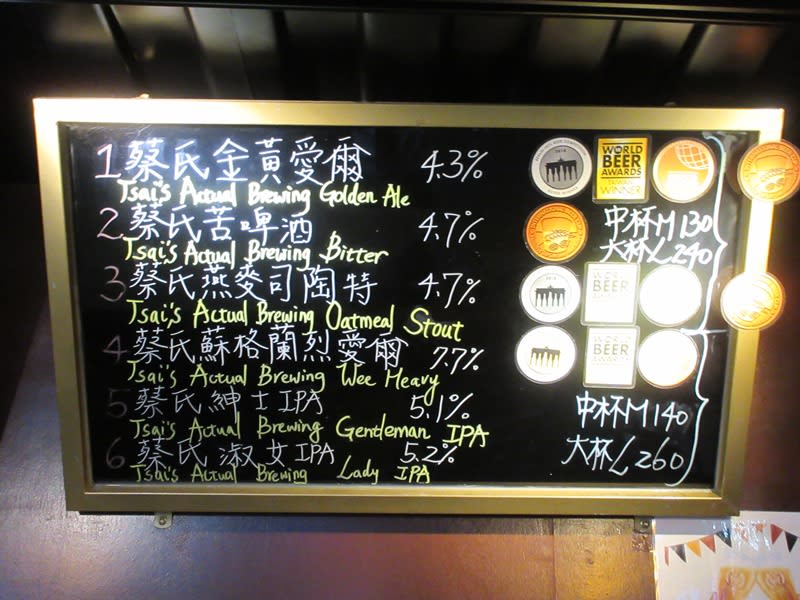 1 蔡氏金黃愛爾 4.3%
Tsai's Actual Brewing Golden Ale
2 蔡氏苦啤酒 4.7%
Tsai's Actual Brewing Bitter
3 蔡氏燕麥司陶特 4.7%
Tsai's Actual Brewing Oatmeal Stout
4 蔡氏蘇格蘭烈愛爾 7.7%
Tsai's Actual Brewing Wee Heavy
5 蔡氏紳士IPA 5.1%
Tsai's Actual Brewing Gentleman IPA
6 蔡氏淑女IPA 5.2%
Tsai's Actual Brewing Lady IPA
WORLD
BEER
AWARDS
WINNER
中杯M130
大杯L240
WORLD
BEER
AWARDS
WORLD
BEER
AWARDS
中杯M140
大杯L260